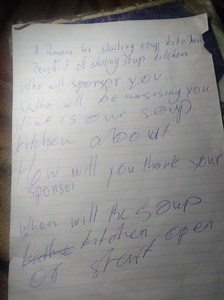 A Reason for starting soup kitchen
Benefit of starting soup kitchen
who will sponsor you
Who will be assisting you
What is our soup
kitchen about
How will you thank your
sponsor
When will the soup
kitchen open
or start